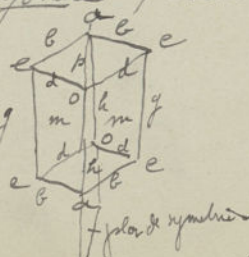 a
b b
e p e
d d
o
h g
m m
o
d d
e h e
b b
a
plan de symétrie